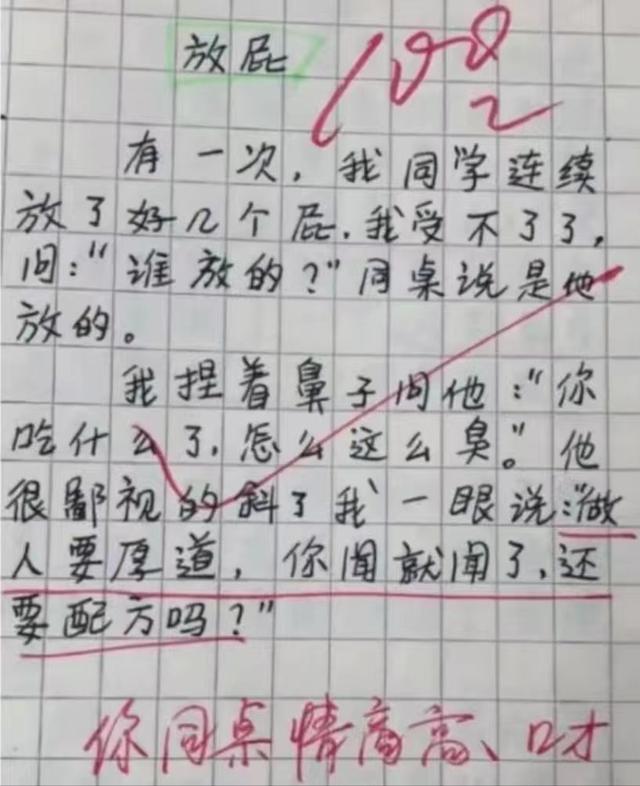 放屁
100
有一次，我同学连续
放了好几个屁，我受不了了，
问："谁放的？"同桌说是他
放的。
我捏着鼻子问他："你
吃什么了，怎么这么臭。"他
很鄙视的斜了我一眼说："做
人要厚道，你闻就闻了，还
要配方吗？"
你同桌情商高、口才